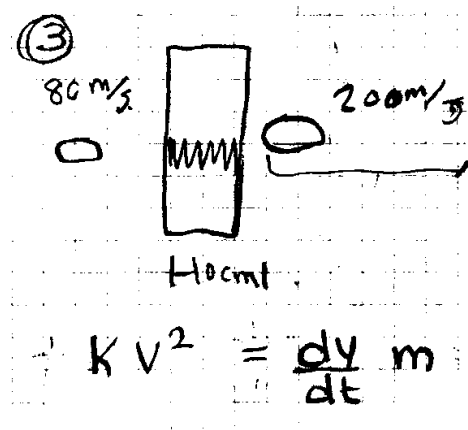 ③
80 m/s.
200m/s
10cm
K V² = dy/dt m